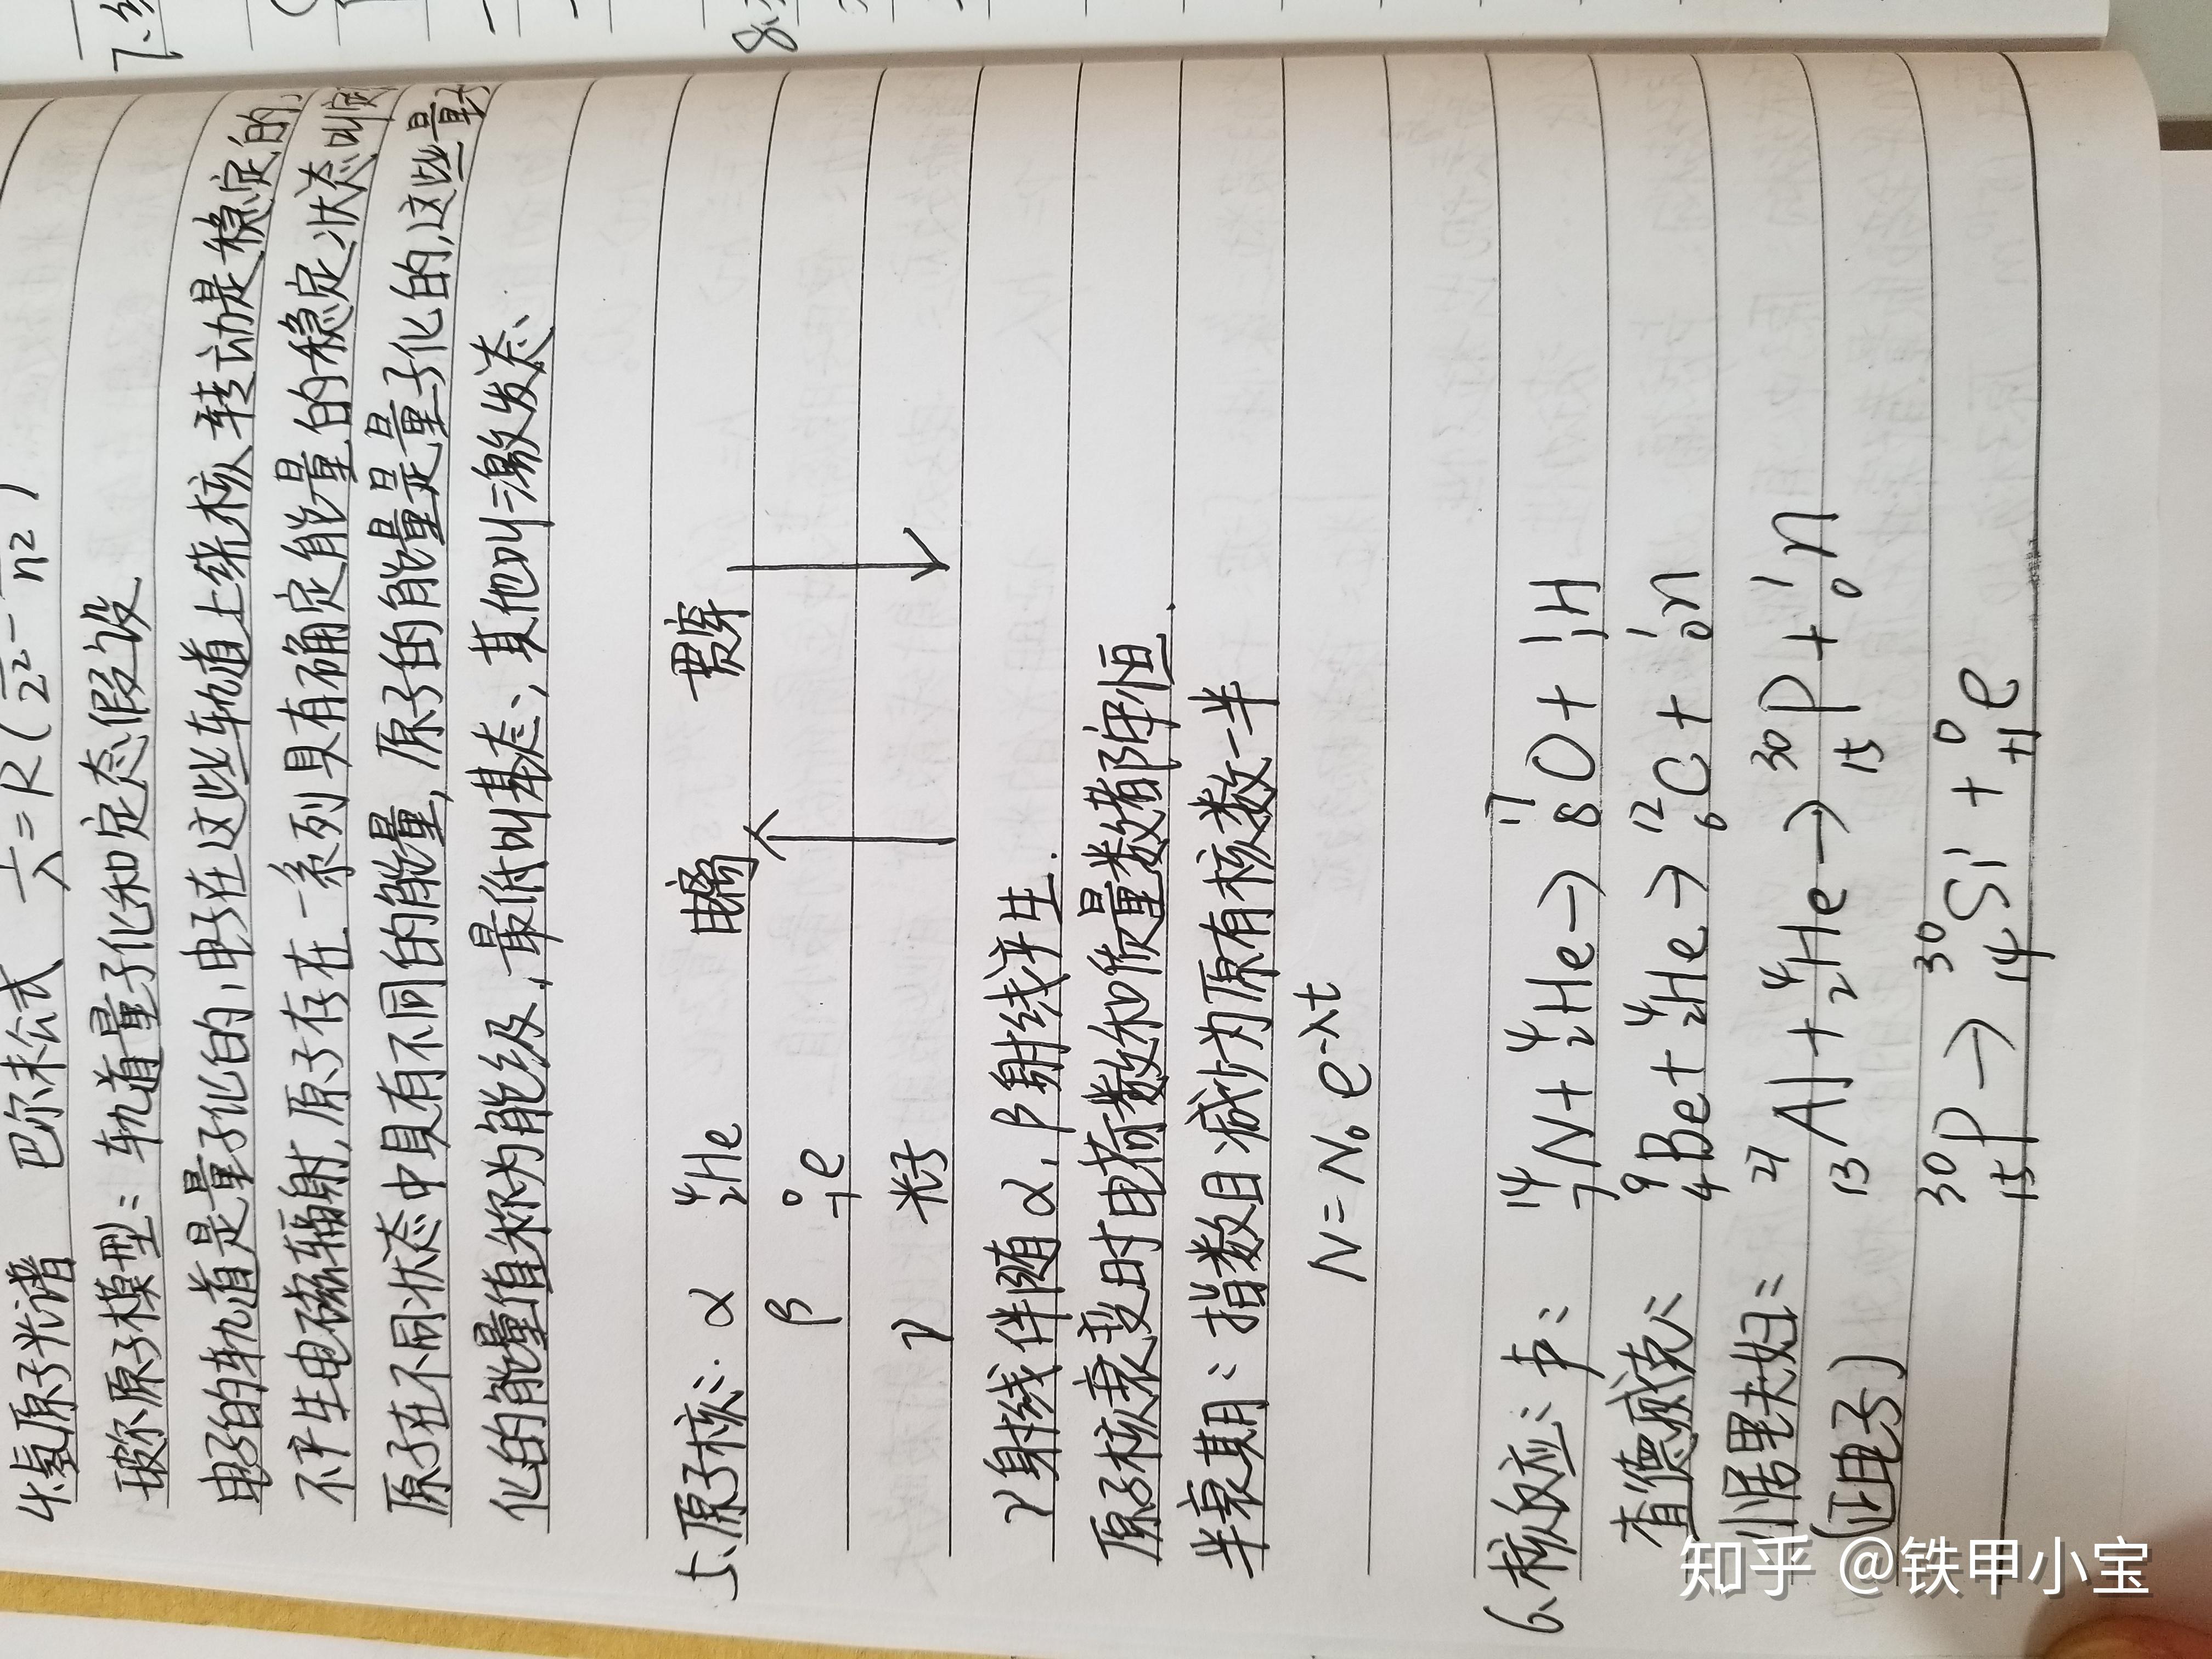 4.氢原子光谱 巴尔末公式 1/λ=R(1/2²-1/n²)
玻尔原子模型: 轨道量子化和定态假设
电子的轨道是量子化的,电子在这些轨道上绕核转动是稳定的,
不产生电磁辐射,原子存在一系列具有确定能量的稳定状态叫定
原子在不同状态中具有不同的能量,原子的能量是量子化的,这些量子
化的能量值称为能级,最低叫基态、其他叫激发态、
5、原子核: α ⁴₂He 电离 贯穿
β ⁰₋₁e
γ 光子
γ射线伴随α,β射线产生.
原子核衰变时电荷数和质量数都守恒.
半衰期: 指数目减少为原有核数一半
N=N₀e^-λt
6、核反应: 卢: ¹⁴₇N+⁴₂He→¹⁷₈O+¹₁H
查德威克: ⁹₄Be+⁴₂He→¹²₆C+¹₀n
小居里夫妇: ²⁷₁₃Al+⁴₂He→³⁰₁₅P+¹₀n
(正电子) ³⁰₁₅P→³⁰₁₄Si+⁰₊₁e
7、
8、
知乎 @铁甲小宝